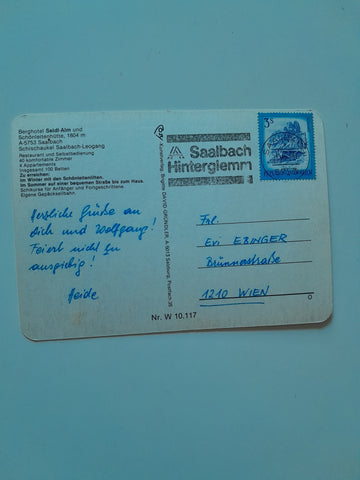 Berghotel Seidl-Alm und
Schönleitenhütte, 1804 m
A-5753 Saalbach
Schischaukel Saalbach-Leogang
Restaurant und Selbstbedienung
40 komfortable Zimmer
4 Appartements
Insgesamt 100 Betten
Zu erreichen:
Im Winter mit den Schönleitenliften.
Im Sommer auf einer bequemen Straße bis zum Haus.
Schikurse für Anfänger und Fortgeschrittene
Eigene Gepäckseilbahn.
Herzliche Grüße an
dich und Wolfgang!
Feiert nicht zu
ausgiebig!
Heide
Saalbach
Hinterglemm
3s
Frl.
Evi EBINGER
Brünnerstraße
1210 WIEN
Nr. W 10.117